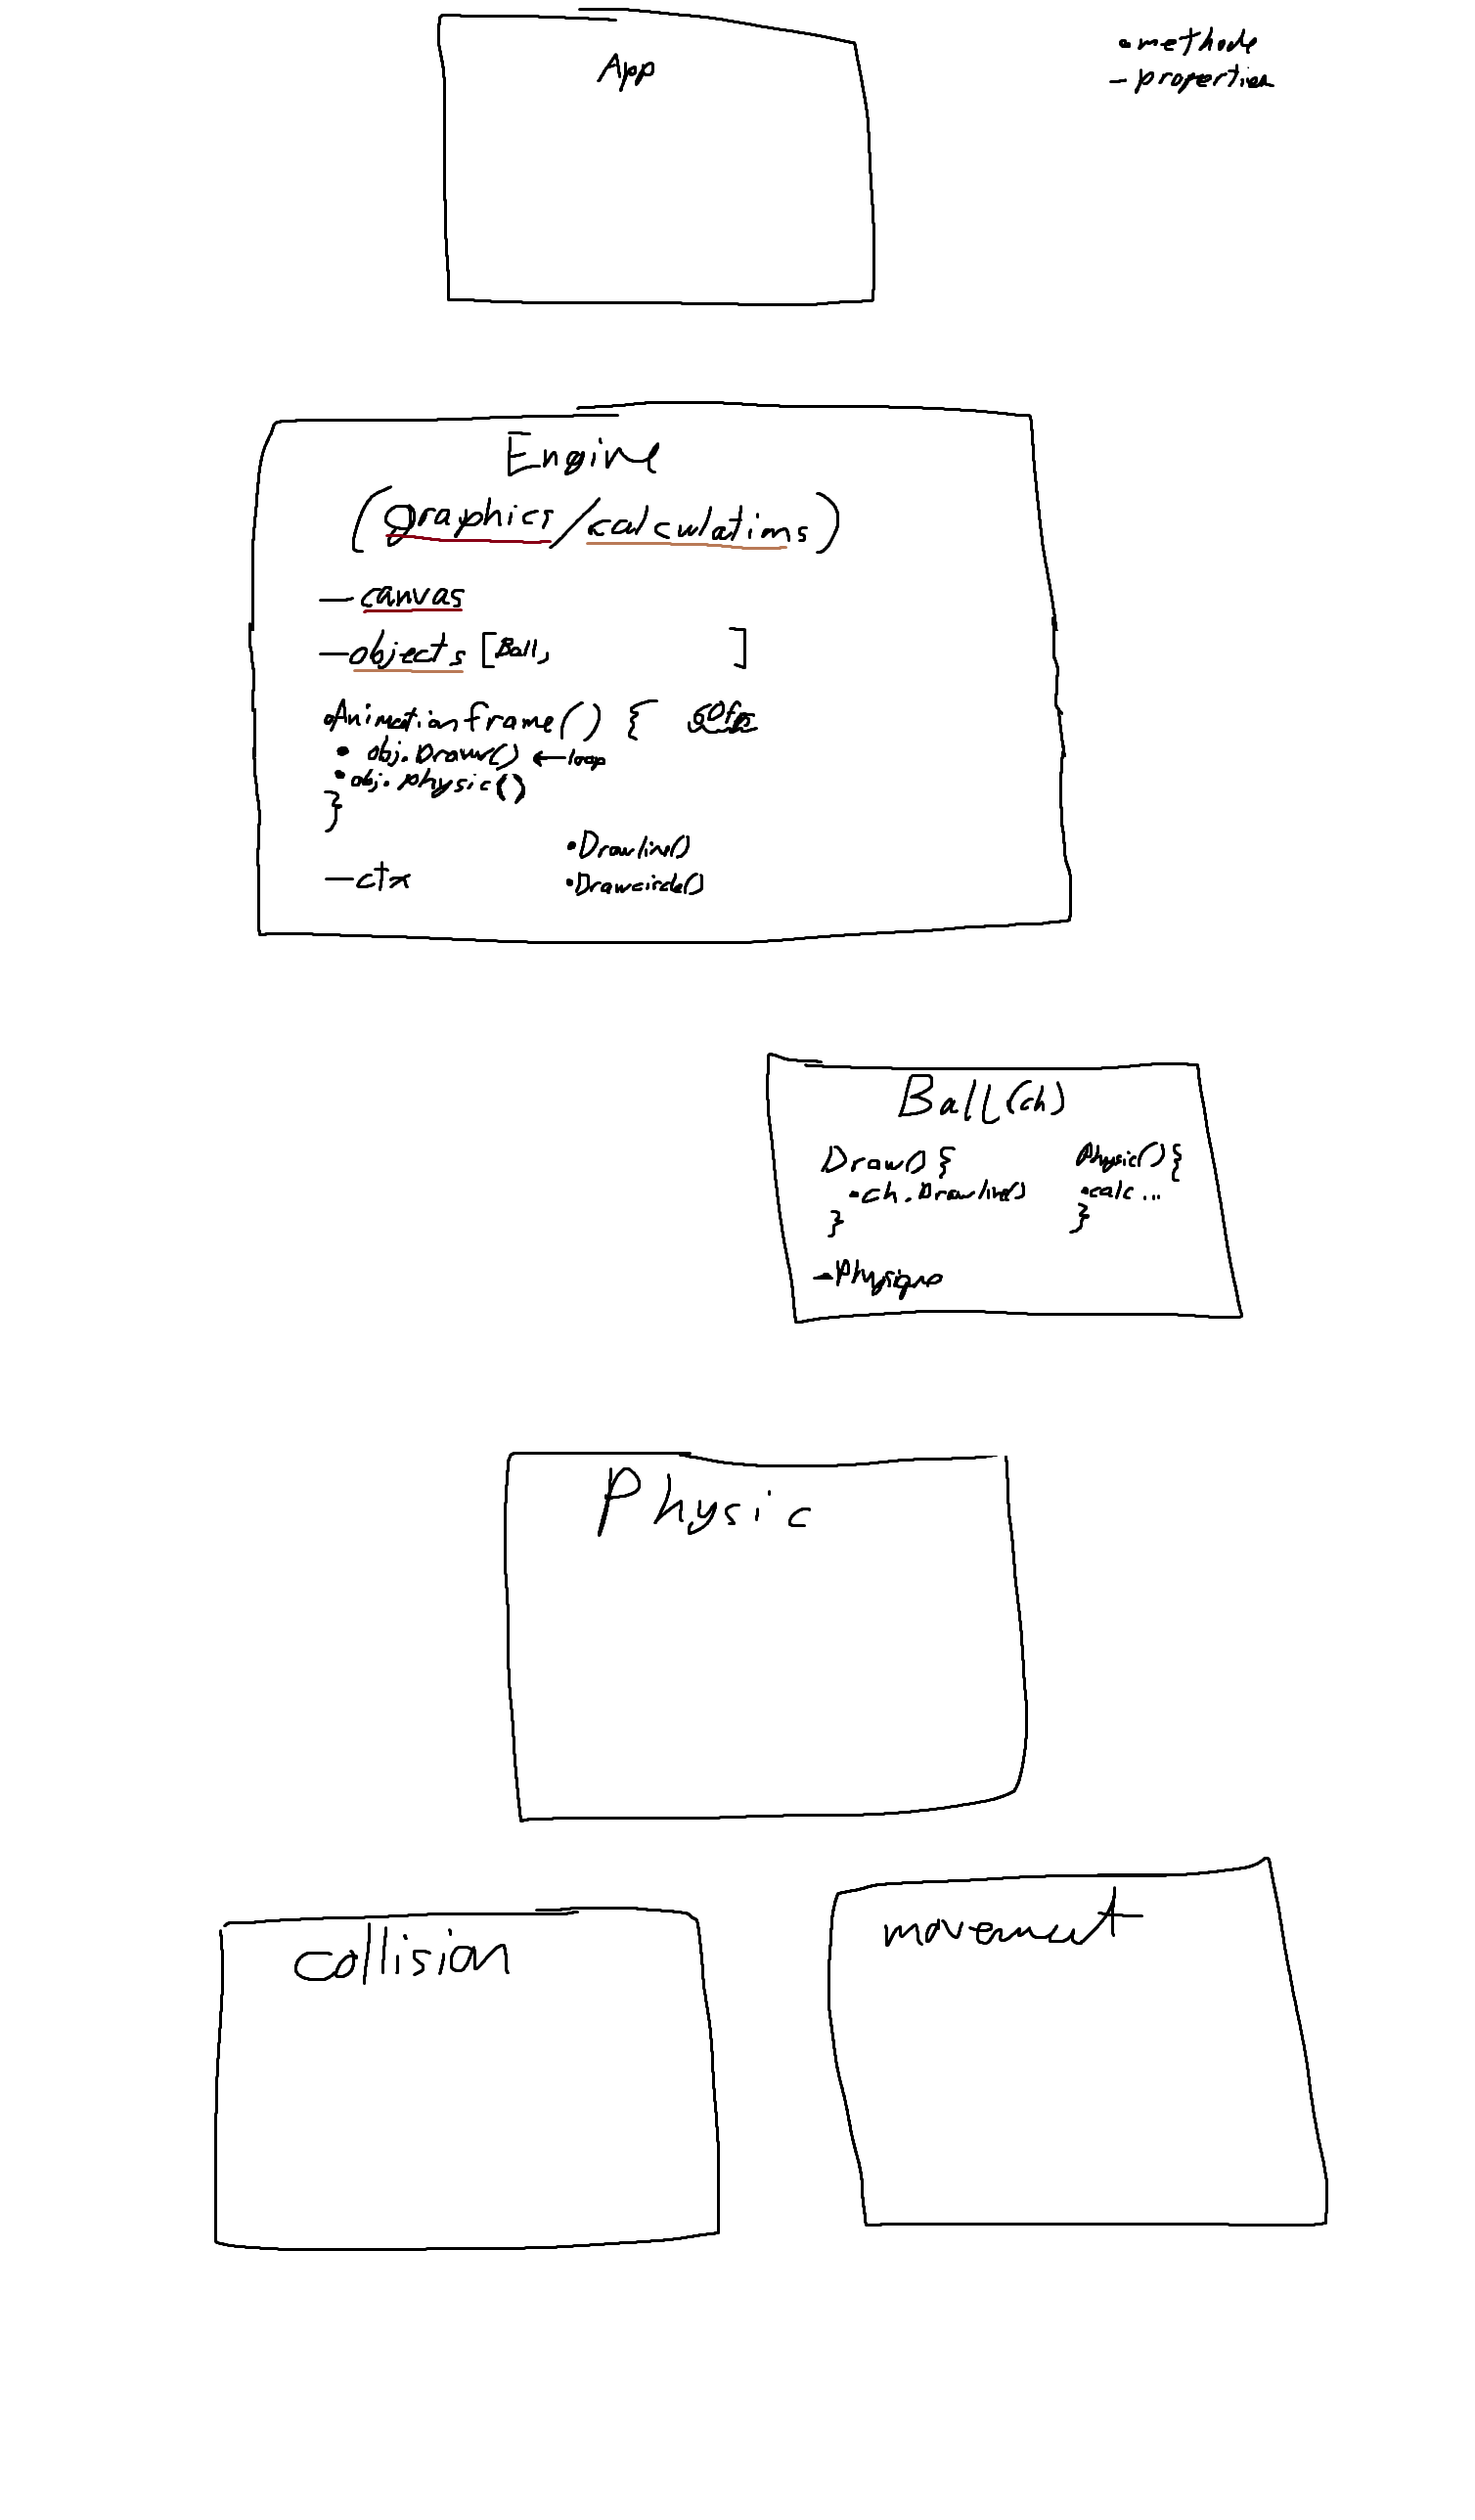 App
• methode
- properties
Engine
(graphics/calculations)
- canvas
- objects [Ball, ]
• Animationframe() { 60fps
• obj.Draw() ← loop
• obj.physic()
}
• Drawline()
- ctx
• Drawcircle()
Ball(ch)
Draw() {
• ch.Drawline()
}
Physic() {
• calc...
}
- Physique
Physic
collision
movement